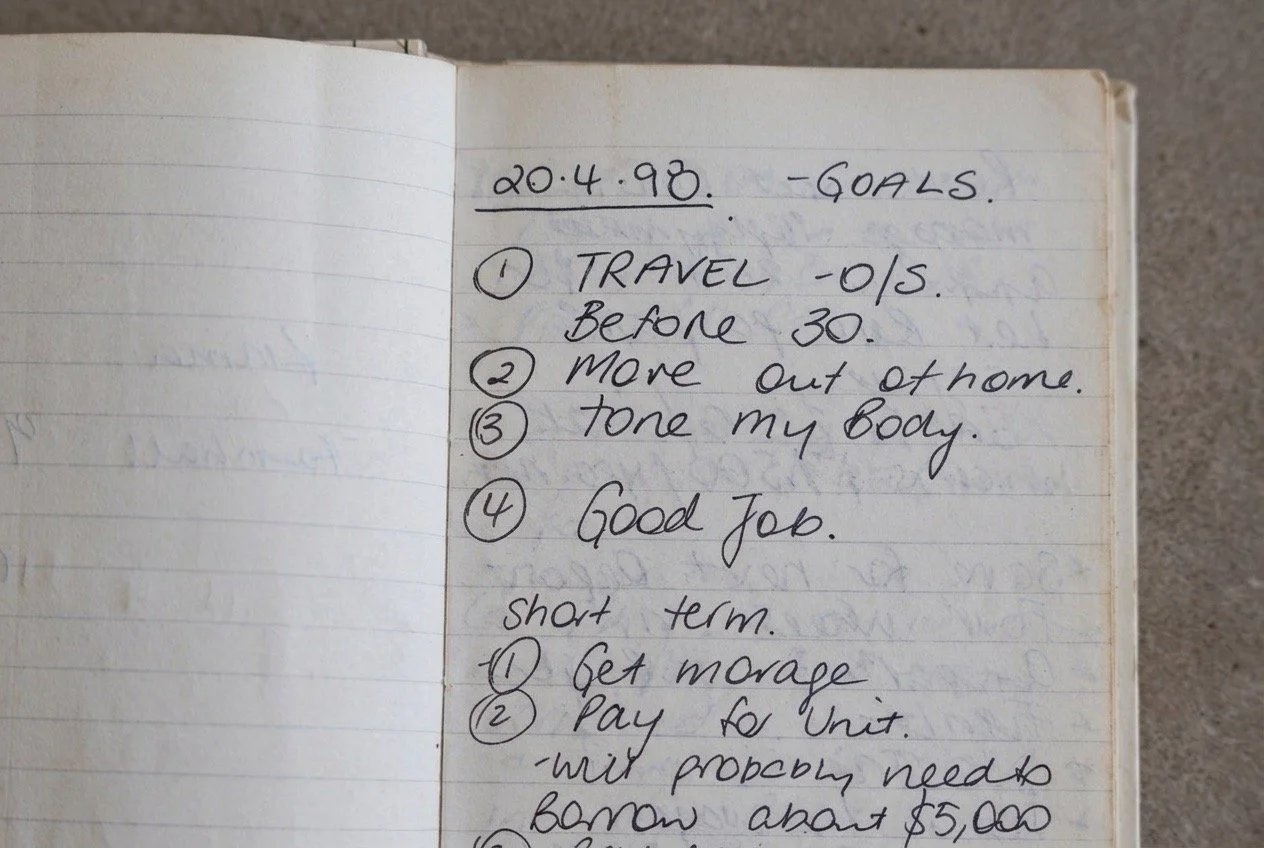 20.4.98. -GOALS.
① TRAVEL -O/S.
Before 30.
② Move out of home.
③ tone my Body.
④ Good Job.
short term.
-① Get morage
② Pay for Unit.
-will probably need to
Borrow about $5,000